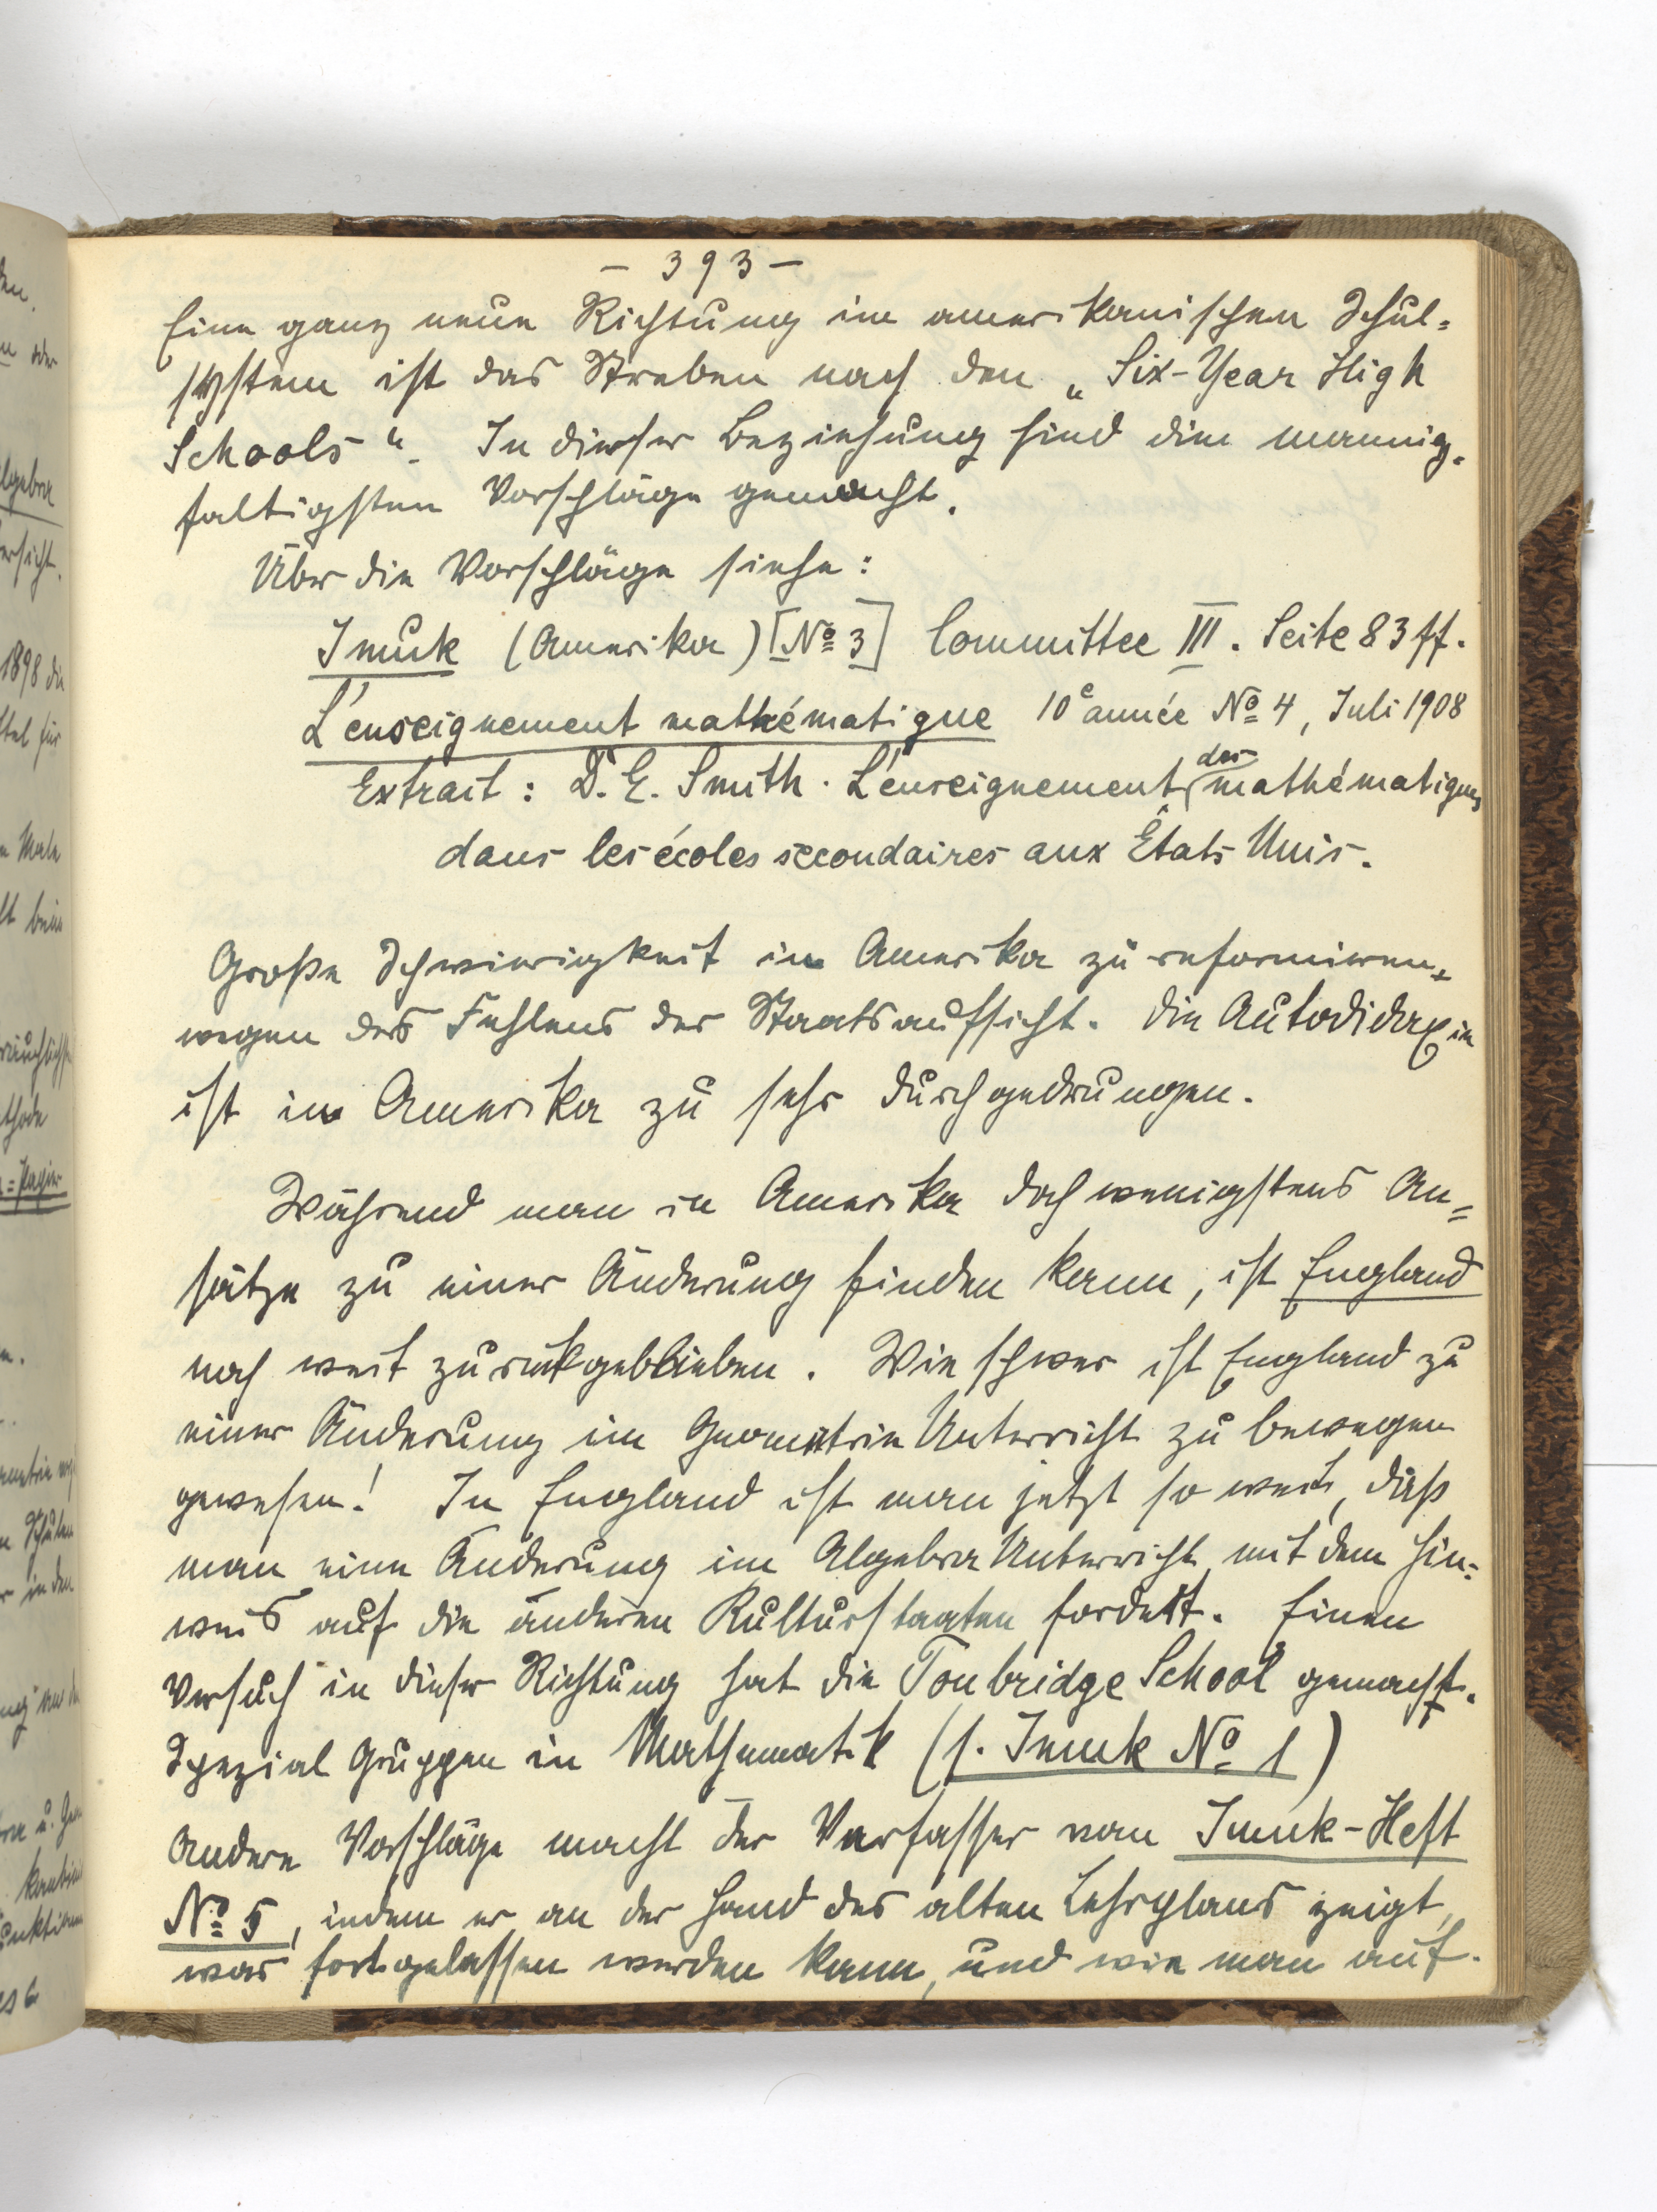 - 393 -
Eine ganz neue Richtung im amerikanischen Schul=
system ist das Streben nach den „Six-Year High
Schools“. In dieser Beziehung sind die mannig=
faltigsten Vorschläge gemacht.
Über die Vorschläge siehe:
Imuk (Amerika) [No 3] Committee III. Seite 83 ff.
L'enseignement mathématique 10e année No 4, Juli 1908
Extrait: D. E. Smith. L'enseignement des mathématiques
dans les écoles secondaires aux États Unis.
Große Schwierigkeit in Amerika zu reformieren,
wegen des Fehlens der Staatsaufsicht. Die Autodidaxie
ist in Amerika zu sehr durchgedrungen.
Während man in Amerika doch wenigstens An=
sätze zu einer Änderung finden kann, ist England
noch weit zurückgeblieben. Wie schwer ist England zu
einer Änderung im Geometrie Unterricht zu bewegen
gewesen! In England ist man jetzt so weit, daß
man eine Änderung im Algebra Unterricht mit dem Hin=
weis auf die anderen Kulturstaaten fordert. Einen
Versuch in dieser Richtung hat die Tonbridge School gemacht.
Spezial Gruppen in Mathematik (s. Imuk No 1)
Andere Vorschläge macht der Verfasser von Imuk-Heft
No 5, indem er an der Hand des alten Lehrplans zeigt,
was fortgelassen werden kann, und wie man auf-